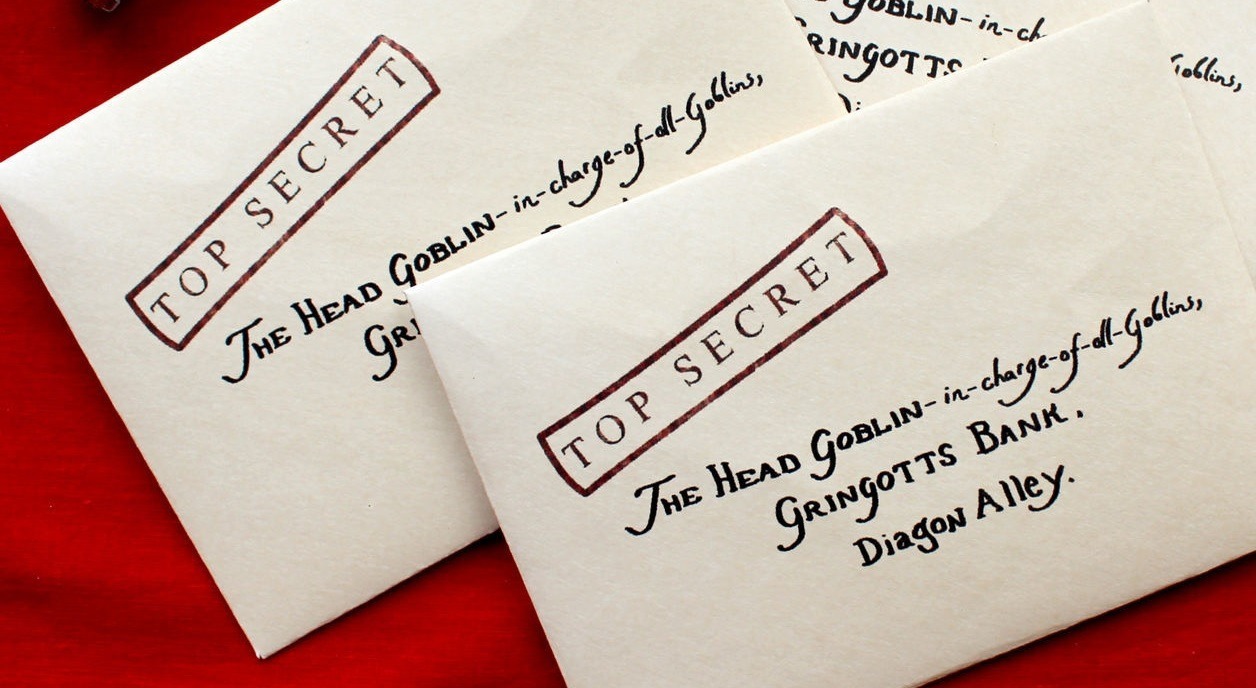 TOP SECRET
THE HEAD GOBLIN-in-charge-of-all-Goblins,
GRI
GOBLIN-in-ch
RINGOTTS
Goblins,
TOP SECRET
THE HEAD GOBLIN-in-charge-of-all-Goblins,
GRINGOTTS BANK,
Diagon Alley.